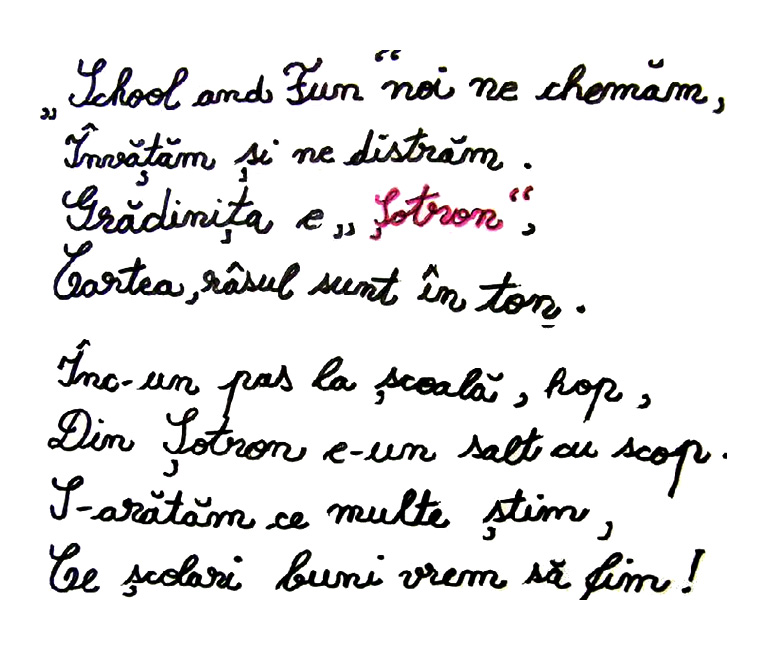 „School and Fun“ noi ne chemăm,
Învățăm și ne distrăm.
Grădinița e „Șotron“,
Cartea, râsul sunt în ton.
Înc-un pas la școală, hop,
Din Șotron e-un salt cu scop.
S-arătăm ce multe știm,
Ce școlari buni vrem să fim!